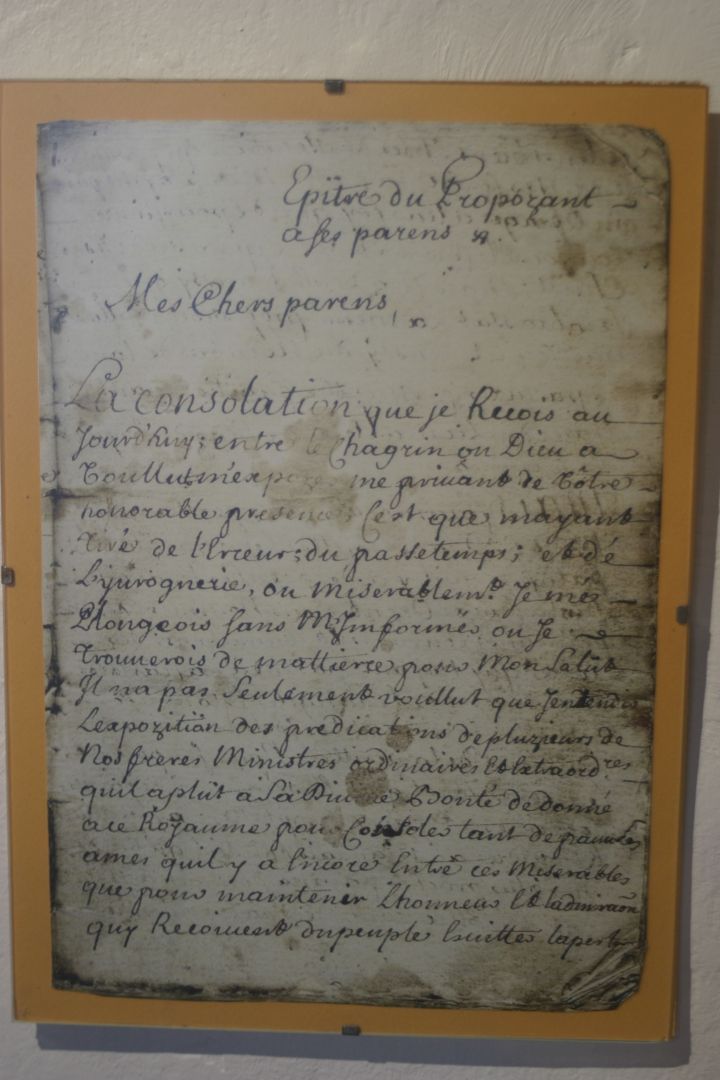 Epitre du Propozant
a ses parens
Mes Chers parens,
La consolation que je Recois au
Jourd'huy; entre le Chagrin ou Dieu a
Voullut m'expozer me privant de Vôtre
honorable presence; C'est que mayant
tiré de l'Erreur; du passetemps; et dé
L'yvrognerie, ou miserablemt. Je mes
Plongeois sans M'Jnformés ou Je
Trouverois de mattierre pour Mon Salut
Jl na pas Seulement voullut que Jentendis
Lexpozition des predications de pluzieurs de
Nos freres Ministres ordinaires Et Extraordres
quil a plût a Sa Divine Bonté de donné
a ce Royaume pour Consoler tant de pauvres
ames quil y a Encore Entre ces Miserables
que pour maintenir L'honneur Et
quy Recoivent du peuple